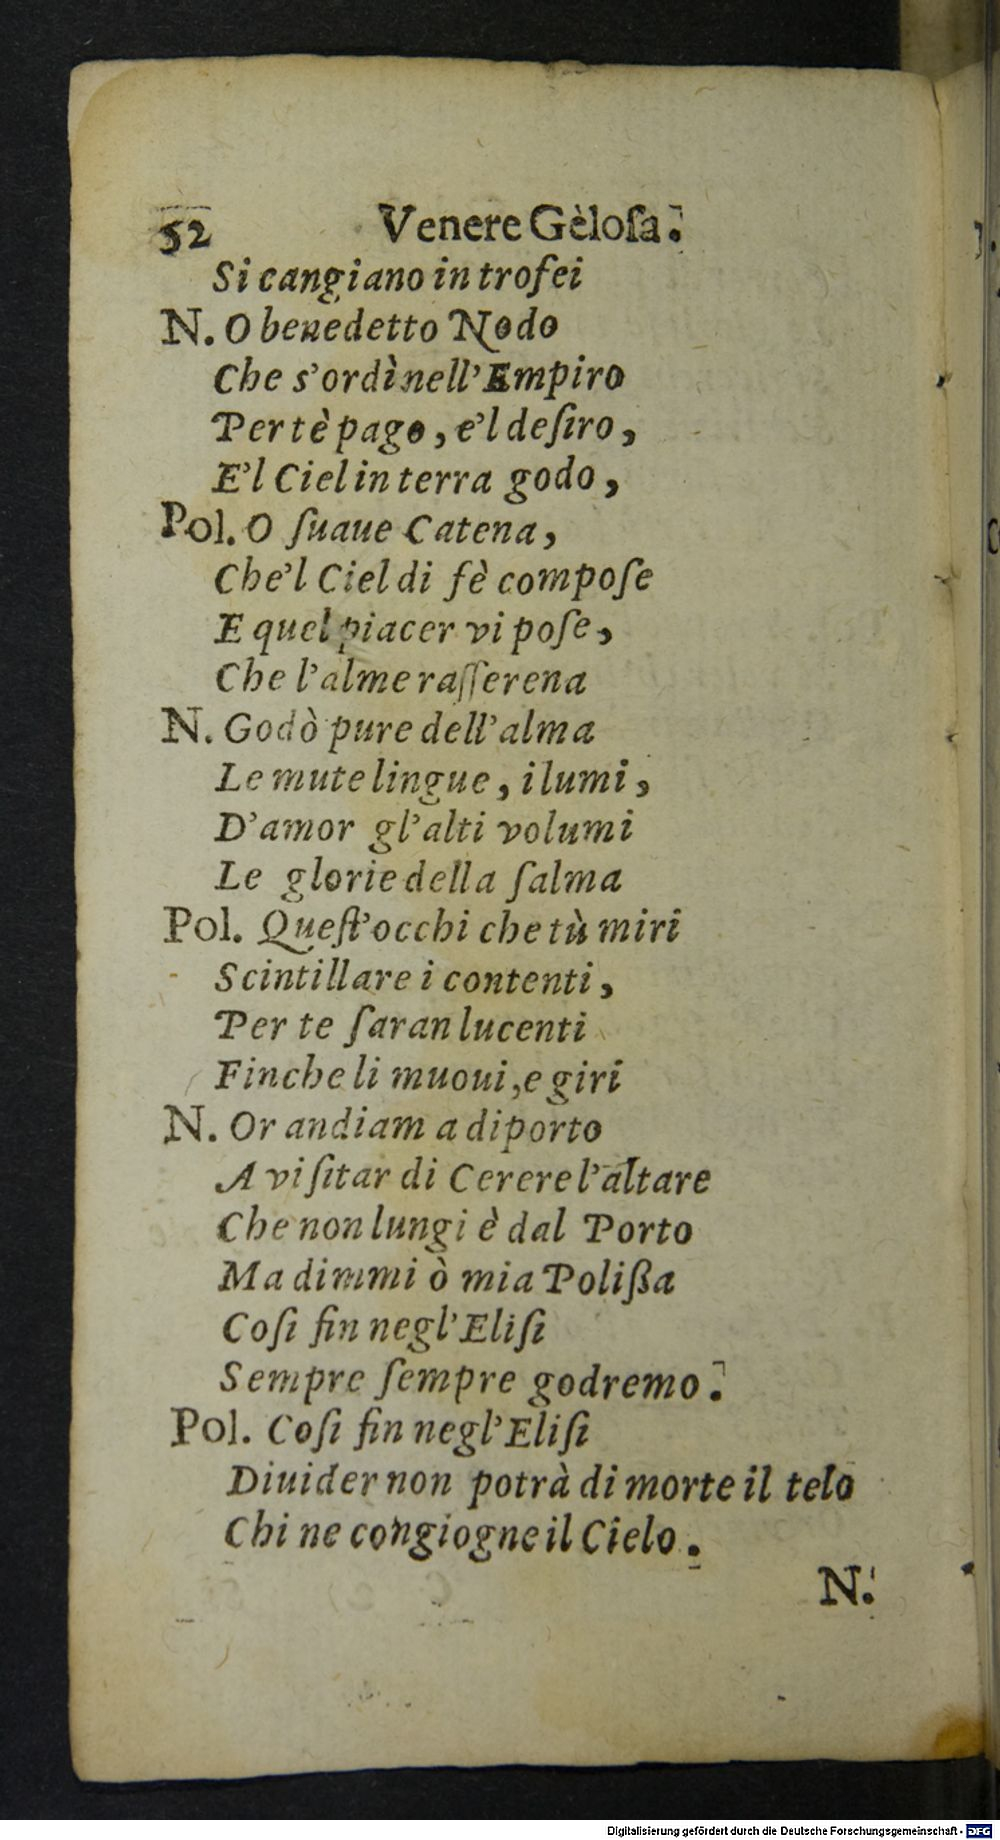 52 Venere Gèloſa.
Si cangiano in trofei
N. O benedetto Nodo
Che s'ordì nell'Empiro
Per tè pago, e'l deſiro,
E'l Ciel in terra godo,
Pol. O ſuaue Catena,
Che'l Ciel di fè compoſe
E quel piacer vi poſe,
Che l'alme raſſerena
N. Godò pure dell'alma
Le mute lingue, i lumi,
D'amor gl'alti volumi
Le glorie della ſalma
Pol. Queſt'occhi che tù miri
Scintillare i contenti,
Per te ſaran lucenti
Finche li muoui, e giri
N. Or andiam a diporto
A viſitar di Cerere l'altare
Che non lungi è dal Porto
Ma dimmi ò mia Polißa
Coſi fin negl'Eliſi
Sempre ſempre godremo.
Pol. Coſi fin negl'Eliſi
Diuider non potrà di morte il telo
Chi ne congiogne il Cielo.
N.
Digitalisierung gefördert durch die Deutsche Forschungsgemeinschaft - DFG